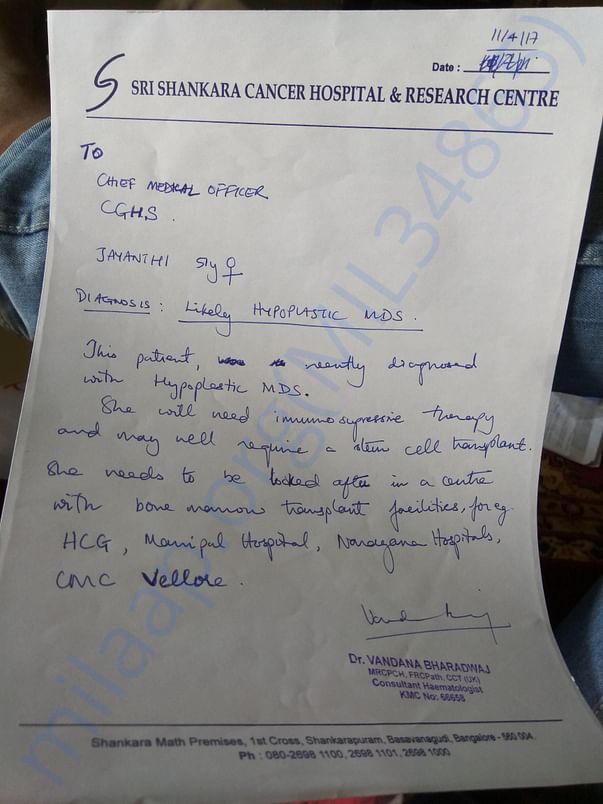 11/4/17
Date :
SRI SHANKARA CANCER HOSPITAL & RESEARCH CENTRE
TO
CHIEF MEDICAL OFFICER
CGHS.
JAYANTHI 51y ♀
DIAGNOSIS : Likely HYPOPLASTIC MDS.
This patient, recently diagnosed
with Hypoplastic MDS.
She will need immunosupressive therapy
and may well require a stem cell transplant.
She needs to be looked after in a centre
with bone marrow transplant facilities, for eg.
HCG, Manipal Hospital, Narayana Hospitals,
CMC Vellore.
Dr. VANDANA BHARADWAJ
MRCPCH, FRCPath, CCT (UK)
Consultant Haematologist
KMC No: 66658
Shankara Math Premises, 1st Cross, Shankarapuram, Basavanagudi, Bangalore - 560 004.
Ph : 080-2698 1100, 2698 1101, 2698 1000
milaap.org(MIL34865)